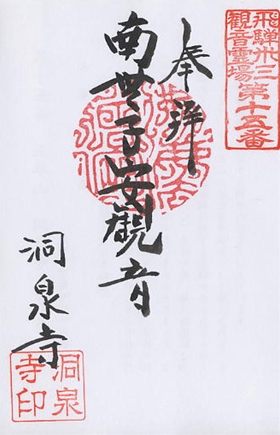 飛騨卅三
観音霊場
第十五番
奉拝
南無子安観音
洞泉寺
洞泉
寺印